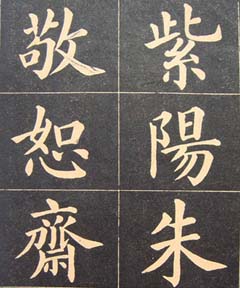 紫陽朱
敬恕齋